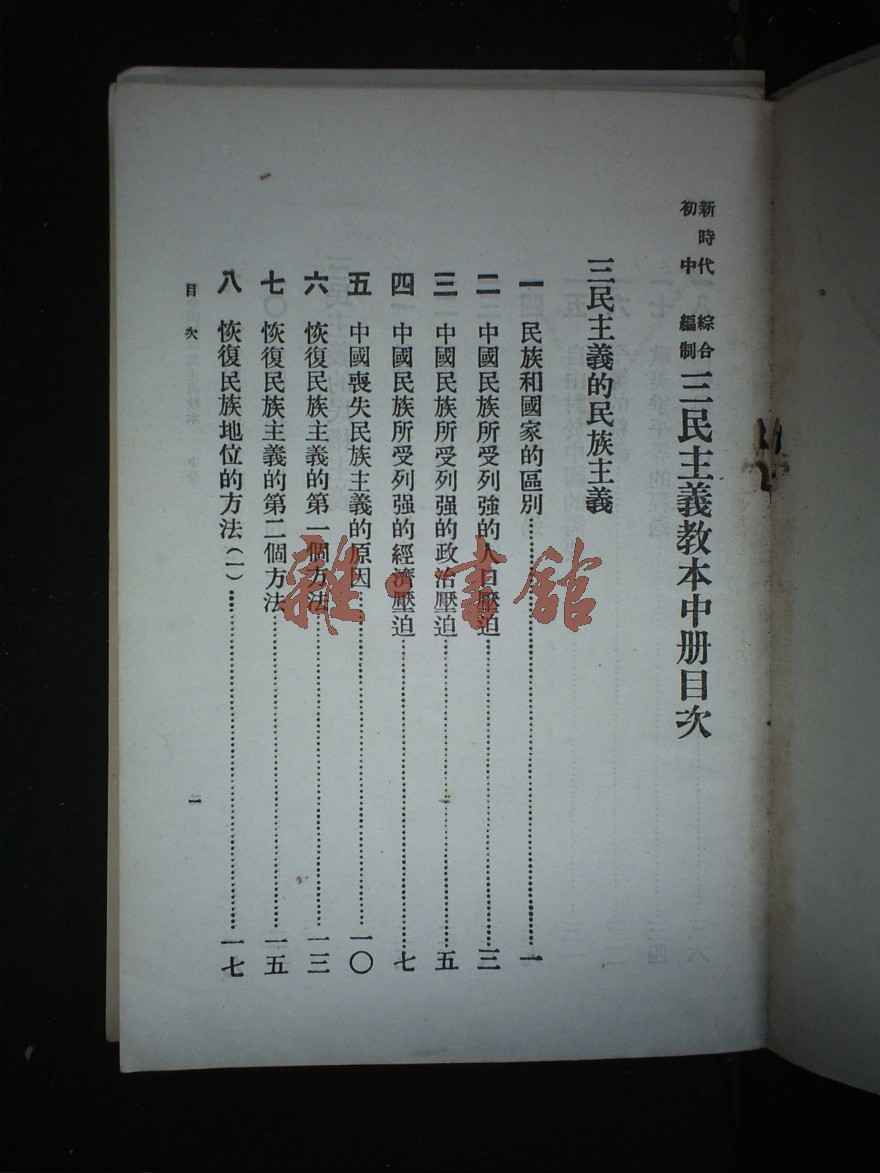 新時代 初中
綜合編制
三民主義教本中册目次
三民主義的民族主義
一 民族和國家的區別……一
二 中國民族所受列強的人口壓迫……三
三 中國民族所受列强的政治壓迫……五
四 中國民族所受列强的經濟壓迫……七
五 中國喪失民族主義的原因……一〇
六 恢復民族主義的第一個方法……一三
七 恢復民族主義的第二個方法……一五
八 恢復民族地位的方法(一)……一七
目次
一
雜·書館